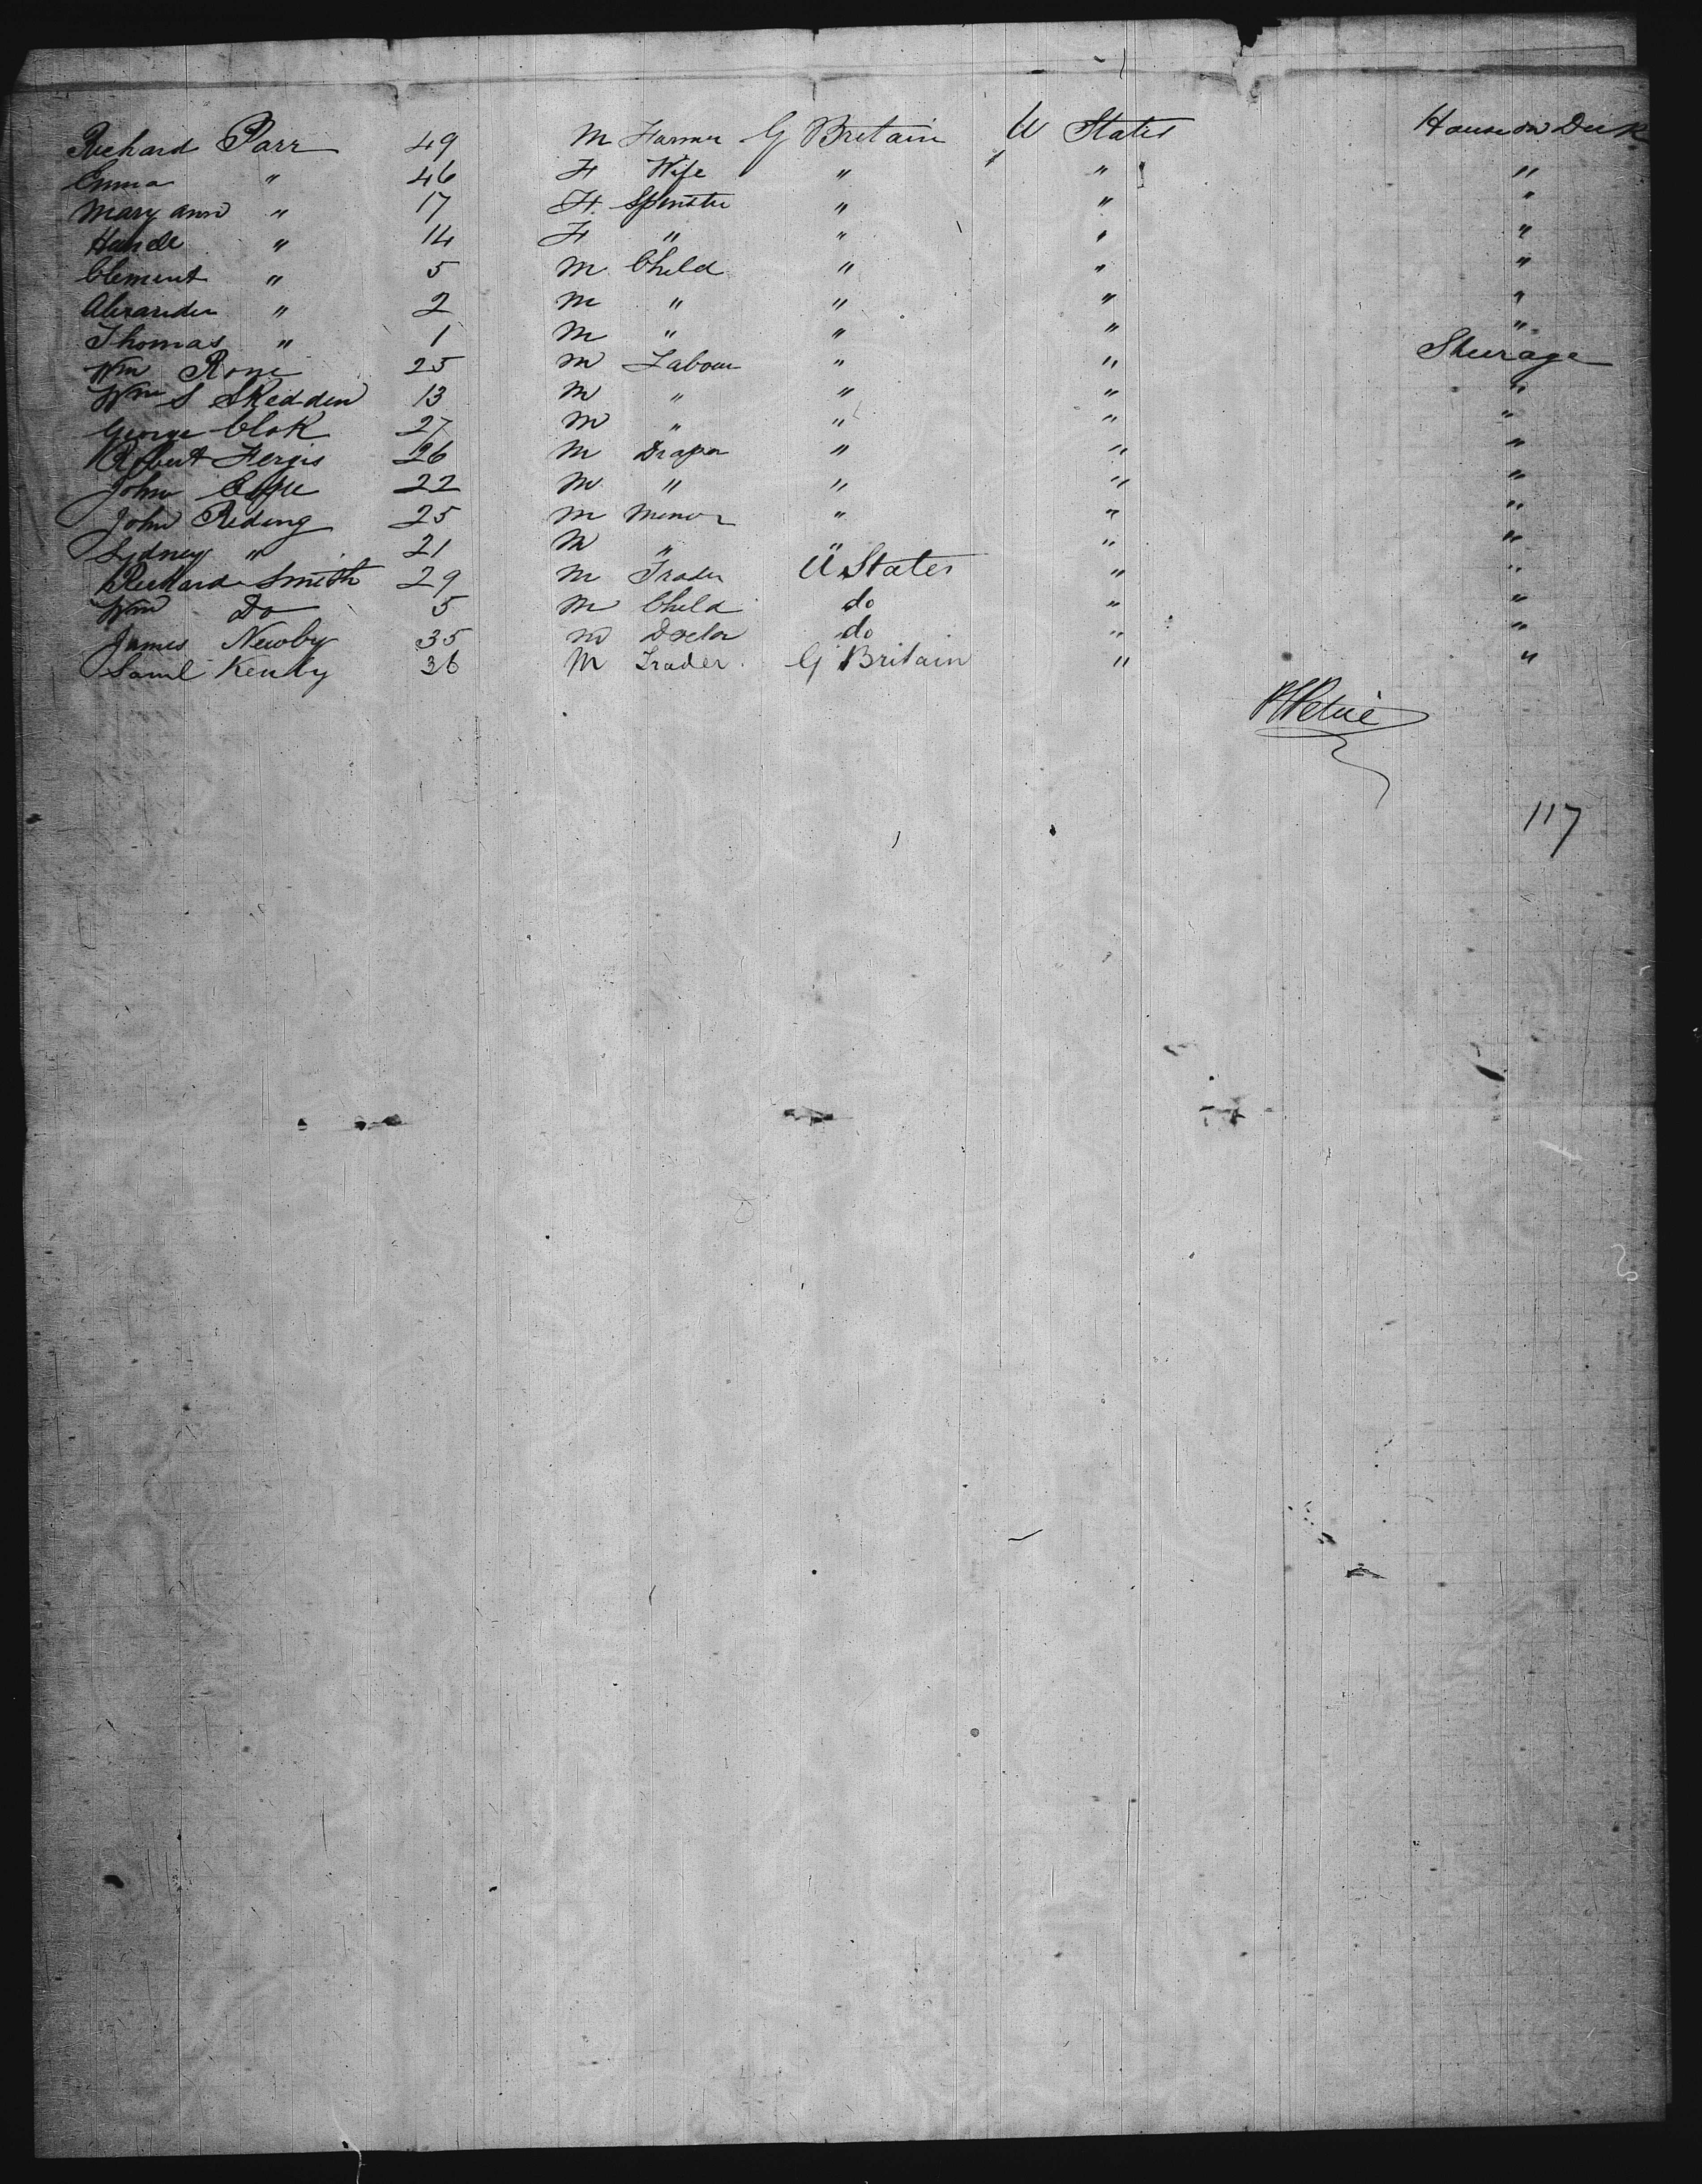 Richard Parr 49 M Farmer G Britain U States House on Deck
Emma " 46 F Wife " " "
Mary Ann " 17 F. Spinster " " "
" 14 F " " " "
Clement " 5 M Child " " "
Alexander " 2 M " " " "
Thomas " 1 M " " " "
Wm 25 M Labour " " Steerage
Wm S Skedden 13 M " " " "
George Clok 27 M " " " "
Robert Fergis 26 M Draper " " "
John 22 M " " " "
John Reding 25 M Minor " " "
Sydney " 21 M " " " "
Richard Smith 29 M Trader U States " "
Wm Do 5 M Child do " "
James Newby 35 M Doctor do " "
Saml Kenby 36 M Trader. G Britain " "
117